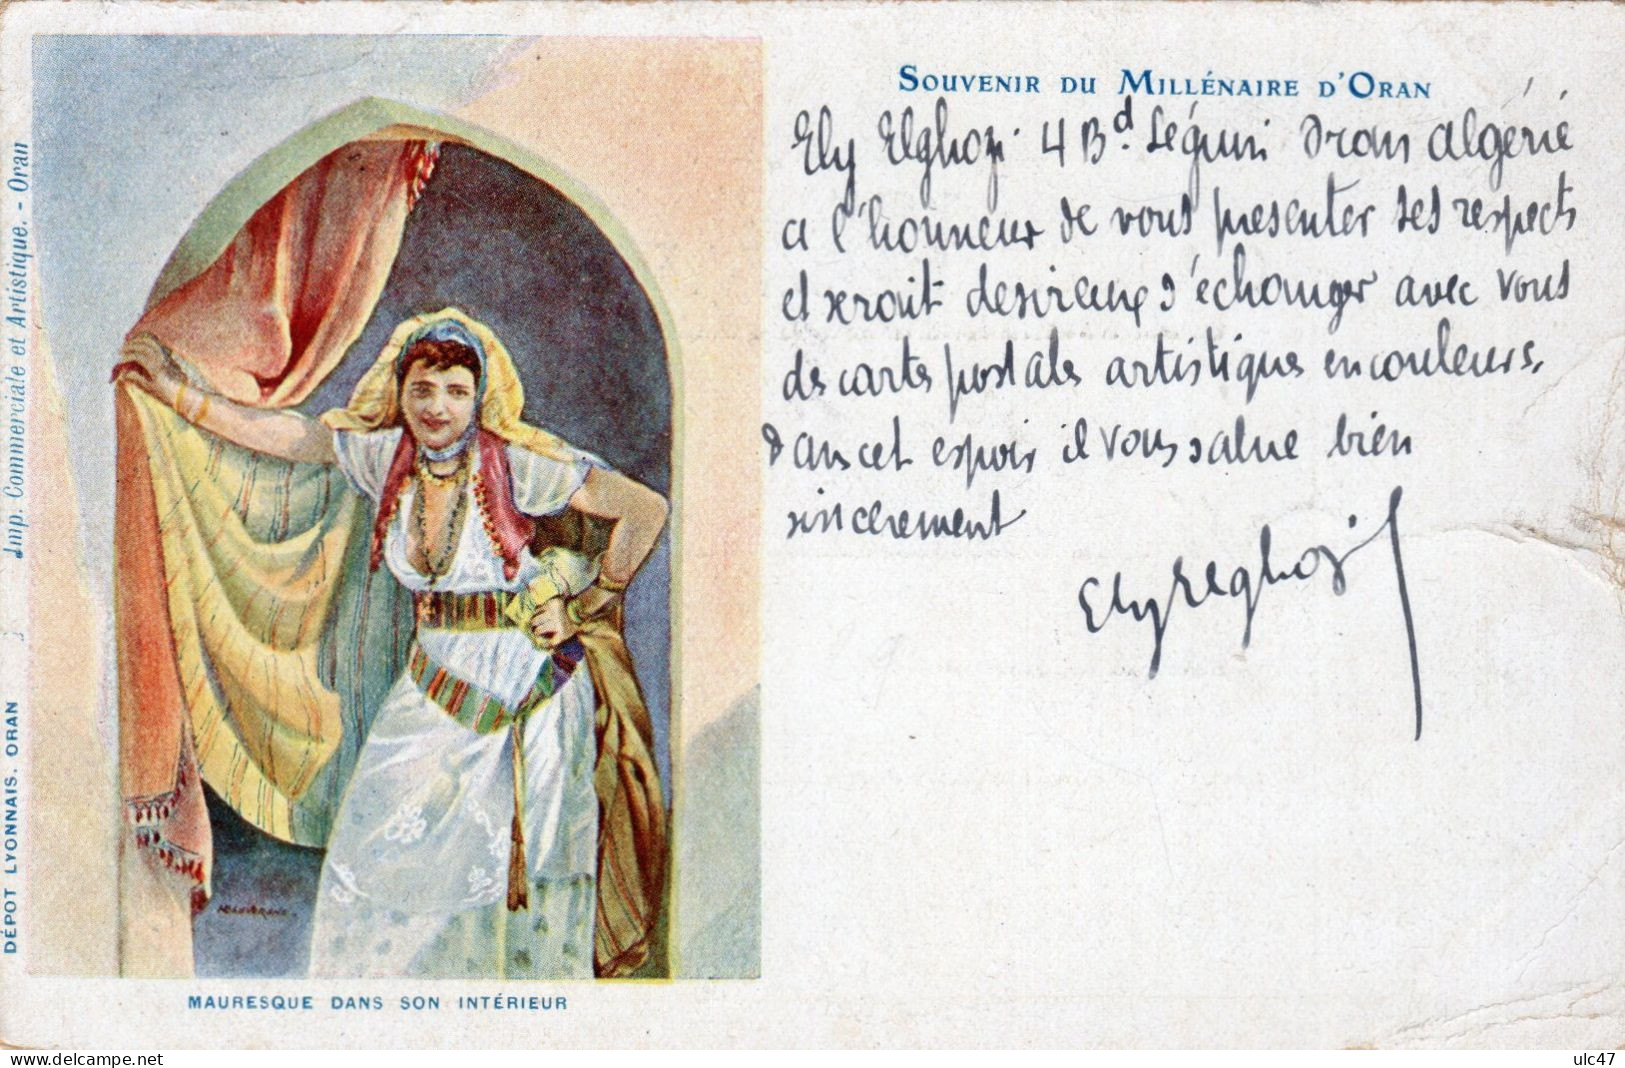 SOUVENIR DU MILLÉNAIRE D'ORAN
Ely Elghozi 4 Bd. Séguin Oran Algérie
a l'honneur de vous presenter ses respects
et serait desireux d'échanger avec vous
des cartes postales artistiques en couleurs.
Dans cet espoir il vous salue bien
sincerement
Ely Elghozi
Imp. Commerciale et Artistique. - Oran
DÉPOT LYONNAIS. ORAN
MAURESQUE DANS SON INTÉRIEUR
www.delcampe.net
ulc47